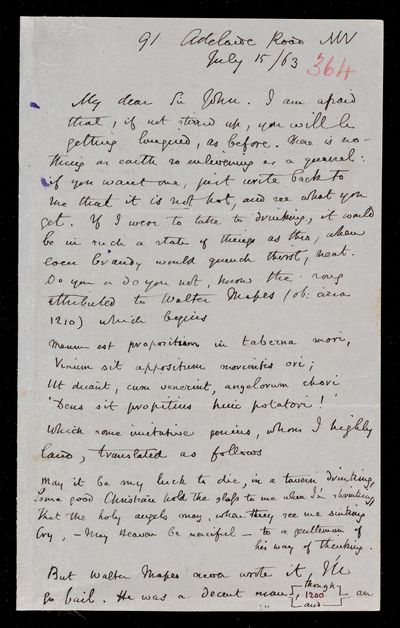 91 Adelaide Road NW
July 15/63
364
My dear Sir John. I am afraid
that, if not stirred up, you will be
getting languid, as before. There is no-
thing on earth so enlivening as a quarrel:
if you want one, just write back to
me that it is not hot, and see what you
get. If I were to take to drinking, it would
be in such a state of things as this, when
even brandy would quench thirst, neat.
Do you or do you not, know the song
attributed to Walter Mapes (ob: circa
1210) which begins
Meum est propositum in taberna mori,
Vinum sit appositum morientis ori;
Ut dicant, cum venerint, angelorum chori
'Deus sit propitius huic potatori!'
Which some imitative genius, whom I highly
laud, translated as follows
May it be my luck to die, in a tavern drinking,
Some good Christian hold the glass to me when I'm shrinking,
That the holy angels may, when they see me sinking
Cry, - May Heaven be merciful - to a gentleman of
his way of thinking.
But Walter Mapes never wrote it, I'll
go bail. He was a decent man, { though / 1200 / and } an